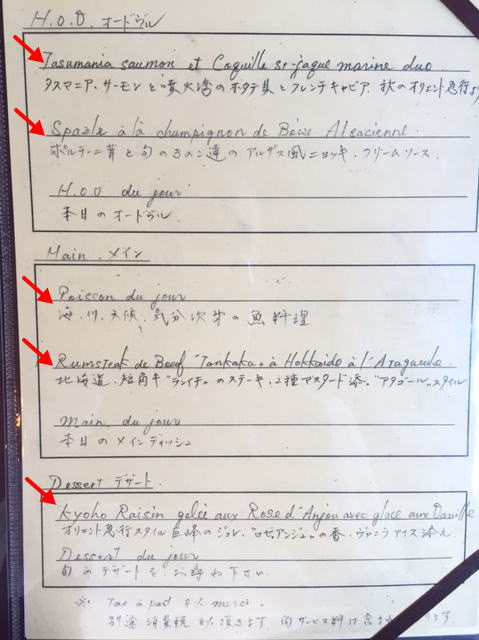 H.O.D. オードヴル
Tasumania saumon et Coquille st-jaque marine duo.
タスマニア、サーモンと噴火湾のホタテ貝とフレンチキャビア、秋のオリエント急行
Spazle à là champignon de Bois Alsacienne.
ポルチーニ茸と旬のきのこ達のアルザス風ニョッキ、クリームソース.
H.O.D du jour
本日のオードヴル.
Main. メイン
Poisson du jour
海、川、天候、気分次第の魚料理
Rumsteak de Boeuf "Tankaku" à Hokkaido à l'Atagueule.
北海道、短角牛"ランイチ"のステーキ、2種マスタード添、"アタゴール"スタイル
Main. du jour
本日のメインディッシュ
Dessert デザート.
Kyoho Raisin gelée aux Rose d'Anjou avec glace aux Vanille
オリエント急行スタイル 巨峰のジュレ、"ロゼアンジュ"の香、ヴァニラアイス添え
Dessert du jour
旬のデザートを、お尋ね下さい
※ Tax à part 8% merci.
別途消費税 8%頂きます. 尚サービス料は含まれております